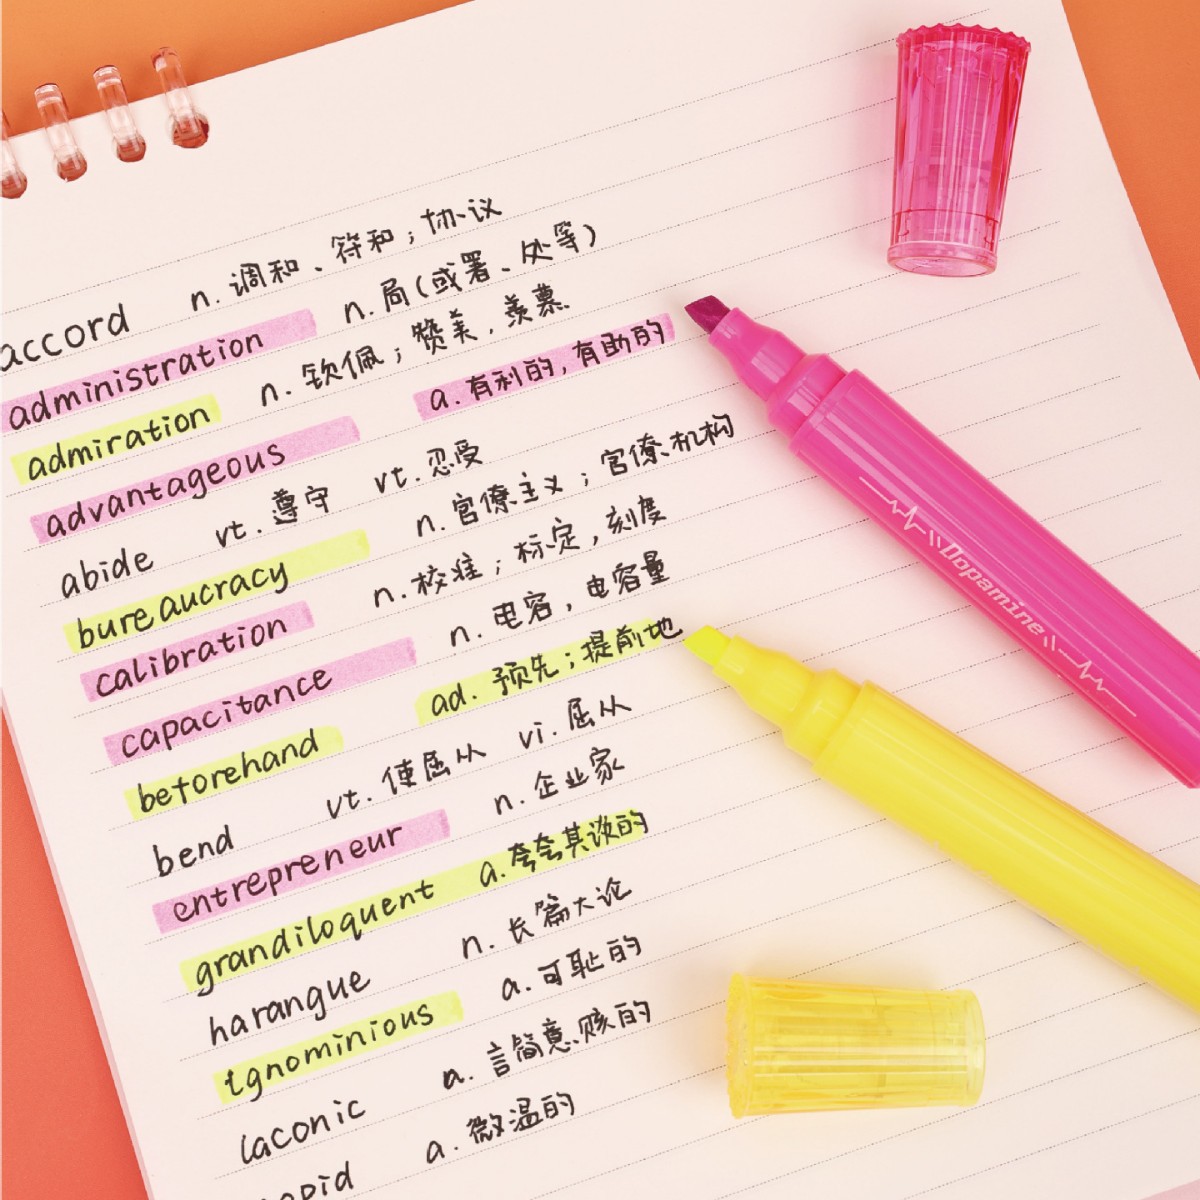 accord n. 调和、符和；协议
administration n. 局(或署、处等)
admiration n. 钦佩；赞美，羡慕
advantageous a. 有利的，有助的
abide vt. 遵守 vt. 忍受
bureaucracy n. 官僚主义；官僚机构
calibration n. 校准；标定，刻度
capacitance n. 电容，电容量
beforehand ad. 预先；提前地
bend vt. 使屈从 vi. 屈从
entrepreneur n. 企业家
grandiloquent a. 夸夸其谈的
harangue n. 长篇大论
ignominious a. 可耻的
laconic a. 言简意赅的
a. 微温的
Dopamine